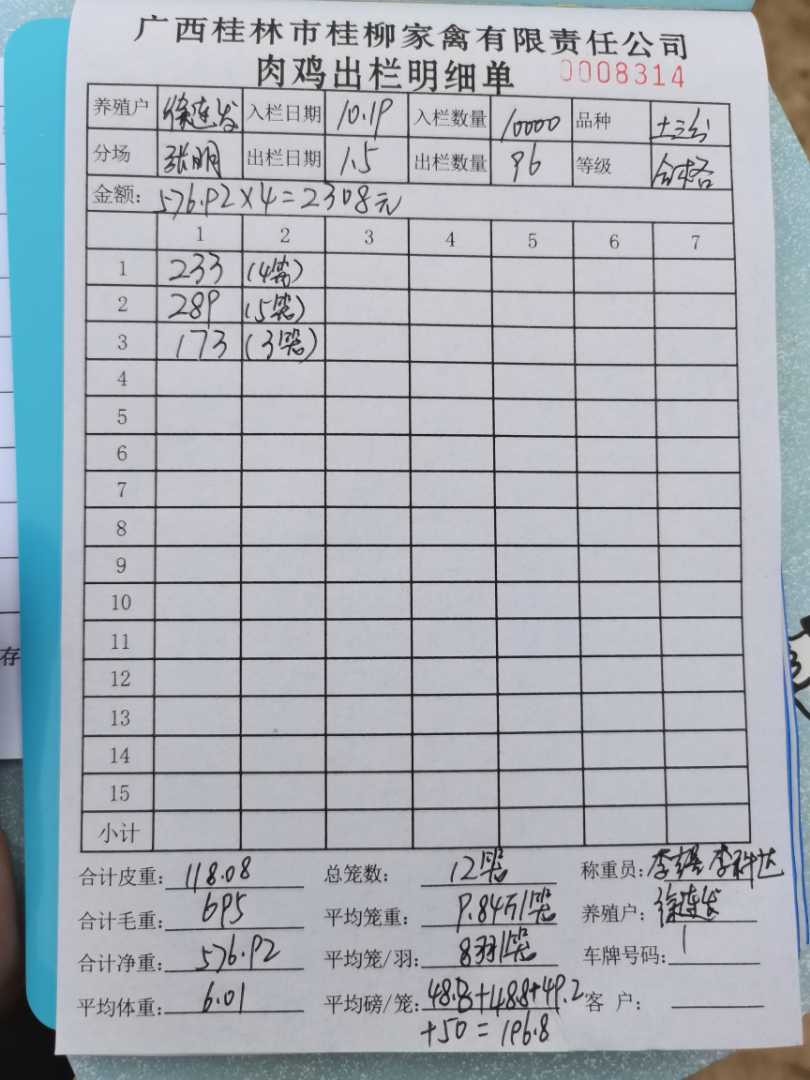 广西桂林市桂柳家禽有限责任公司
肉鸡出栏明细单 0008314
养殖户 徐连发 入栏日期 10.19 入栏数量 10000 品种 土三公
分场 张明 出栏日期 1.5 出栏数量 96 等级 合格
金额: 576.92×4=2308元
1 2 3 4 5 6 7
1 233 (4笼)
2 289 (5笼)
3 173 (3笼)
4
5
6
7
8
9
10
11
12
13
14
15
小计
合计皮重: 118.08 总笼数: 12笼 称重员: 李 李科达
合计毛重: 695 平均笼重: 9.84斤/笼 养殖户: 徐连发
合计净重: 576.92 平均笼/羽: 8羽/笼 车牌号码:
平均体重: 6.01 平均磅/笼: 48.8+48.8+49.2 客 户:
+50=196.8
存